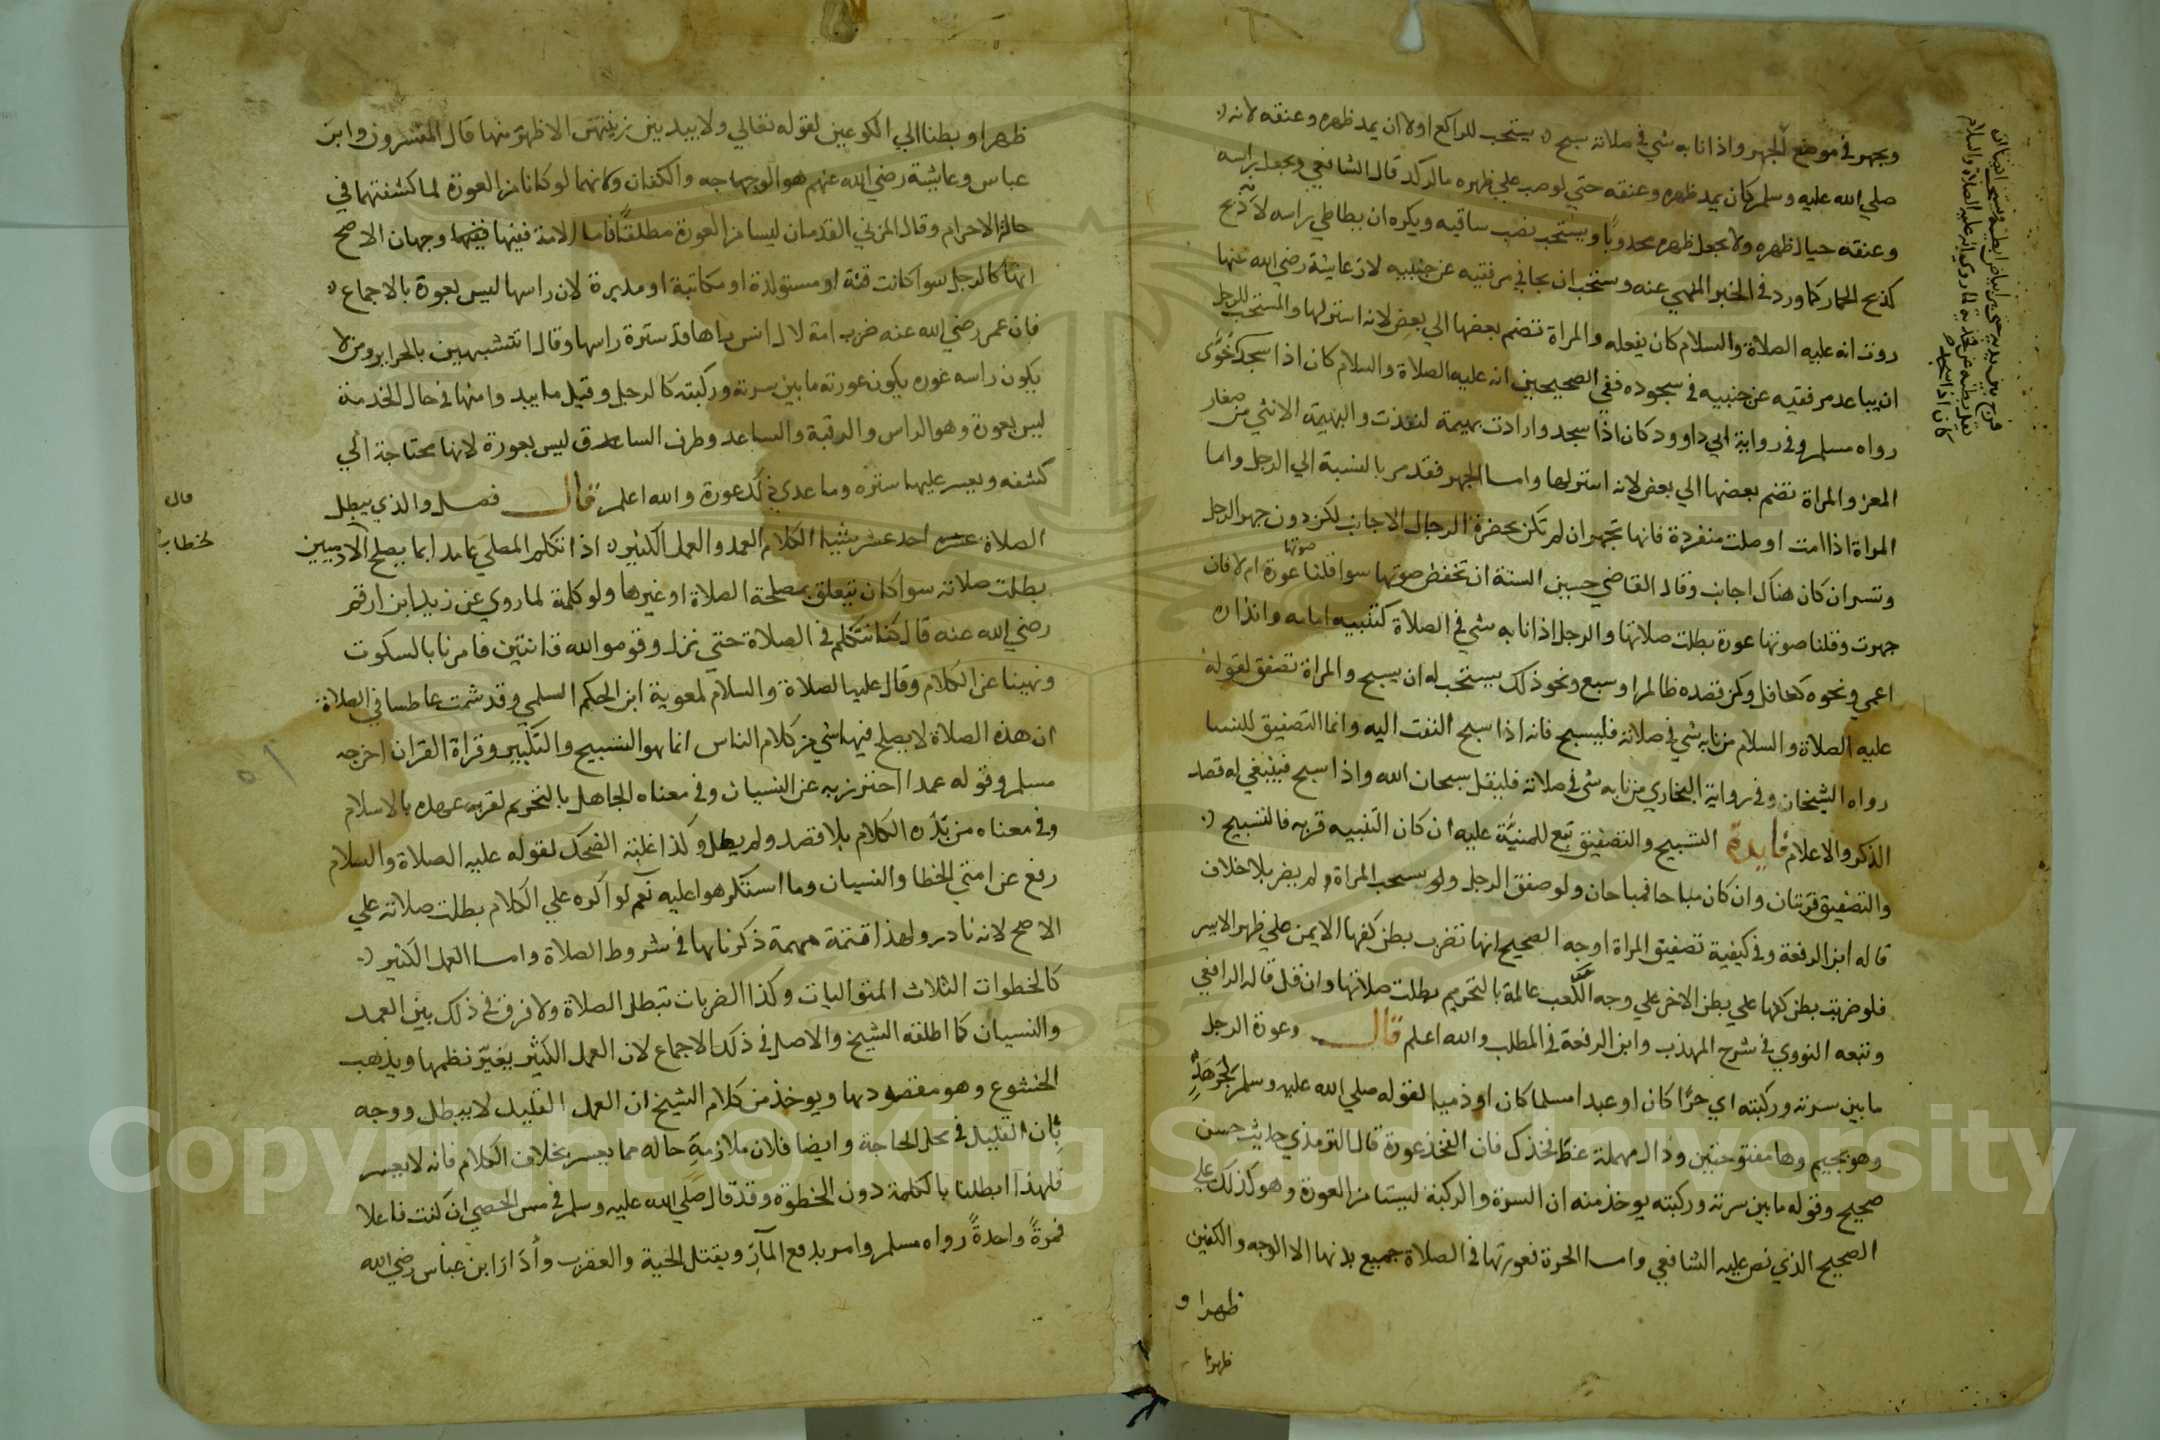 ويجهر في موضع الجهر واذا نابه شي في صلاته سبح يستحب للراكع اولا ان يمد ظهره وعنقه لانه
صلي الله عليه وسلم كان يمد ظهره وعنقه حتي لو صب علي ظهره ما لركد قال الشافعي ويجعل راسه
وعنقه حيال ظهره ولا يجعل ظهره محدوبًا ويستحب نصب ساقيه ويكره ان يطاطي راسه لانه ذبح
كذبح الحمار كما ورد في الخبر النهي عنه ويستحب ان يجافي مرفقيه عن جنبيه لان عايشة رضي الله عنها
روت انه عليه الصلاة والسلام كان يفعله والمراة تضم بعضها الي بعض لانه استر لها والمستحب للرجل
ان يباعد مرفقيه عن جنبيه في سجوده ففي الصحيحين انه عليه الصلاة والسلام كان اذا سجد خوّى
رواه مسلم وفي رواية ابي داوود كان اذا سجد وارادت بهيمة لنفذت والبهيمة الانثي من صغار
المعز والمراة تضم بعضها الي بعض لانه استر لها واما الجهر فقد مر بالنسبة الي الرجل واما
المراة اذا امت او صلت منفردة فانها تجهر ان لم تكن بحضرة الرجال الاجانب لكن دون جهر الرجل
وتسر ان كان هناك اجانب وقال القاضي حسين السنة ان تخفض صوتها سوا قلنا صوتها عورة ام لا فان
جهرت وقلنا صوتها عورة بطلت صلاتها والرجل اذا نابه شي في الصلاة كتنبيه امامه وانذاره
اعمي ونحوه كغافل وكمن قصده ظالم او سبع ونحو ذلك يستحب له ان يسبح والمراة تصفق لقوله
عليه الصلاة والسلام من نابه شي في صلاته فليسبح فانه اذا سبح التفت اليه وانما التصفيق للنسا
رواه الشيخان وفي رواية البخاري من نابه شي في صلاته فليقل سبحان الله واذا سبح فينبغي له قصد
الذكر والاعلام فايدة التسبيح والتصفيق تبع للمنبَّه عليه ان كان التنبيه قربه فالتسبيح
والتصفيق قربتان وان كان مباحا فمباحان ولو صفق الرجل ولو سبحت المراة لم يضر بلا خلاف
قاله ابن الرفعة وفي كيفية تصفيق المراة اوجه الصحيح انها تضرب بطن كفها الايمن علي ظهر الايسر
فلو ضربت بطن كفها علي بطن الاخر علي وجه اللعب عالمة بالتحريم بطلت صلاتها وان قل قاله الرافعي
وتبعه النووي في شرح المهذب وابن الرفعة في المطلب والله اعلم قال وعورة الرجل
ما بين سرته وركبته اي حرًّا كان او عبدا مسلما كان او ذميا لقوله صلي الله عليه وسلم لجرهد
وهو بجيم وها مفتوحتين وذال مهملة غط فخذك فان الفخذ عورة قال الترمذي حديث حسن
صحيح وقوله ما بين سرته وركبته يوخذ منه ان السرة والركبة ليستا من العورة وهو كذلك علي
الصحيح الذي نص عليه الشافعي واما الحرة فعورتها في الصلاة جميع بدنها الا الوجه والكفين
ظهرا و
ظهرا
ظهرا وبطنا الي الكوعين لقوله تعالي ولا يبدين زينتهن الا ما ظهر منها قال المفسرون وابن
عباس وعايشة رضي الله عنهم هو الوجه والكفان ولانهما لو كانا من العورة لما كشفتهما في
حالة الاحرام وقال المزني القدمان ليسا من العورة مطلقًا فاما الامة ففيها وجهان الاصح
انها كالرجل سوا كانت قنّة او مستولدة او مكاتبة او مدبرة لان راسها ليس بعورة بالاجماع
فان عمر رضي الله عنه ضرب امة لال انس راها قد سترة راسها وقال اتتشبهين بالحراير ومن لا
يكون راسه عوره يكون عورته ما بين سرته وركبته كالرجل وقيل ما يبدوا منها في حال الخدمة
ليس بعورة وهو الراس والرقبة والساعد وطرف الساق ليس بعورة لانها محتاجة الي
كشفه ويعسر عليها ستره وما عدي ذلك عورة والله اعلم قال فصل والذي يبطل
الصلاة احد عشر شيا الكلام العمد والعمل الكثير اذا تكلم المصلي عامدا بما يصلح الادميين
بطلت صلاته سوا كان يتعلق بمصلحة الصلاة او غيرها ولو كلمة لما روي عن زيد ابن ارقم
رضي الله عنه قال كنا نتكلم في الصلاة حتي نزل وقوموا لله قانتين فامرنا بالسكوت
ونهينا عن الكلام وقال عليه الصلاة والسلام لمعوية ابن الحكم السلمي وقد شمت عاطسا في الصلاة
ان هذه الصلاة لا يصلح فيها شي من كلام الناس انما هو التسبيح والتكبير وقراة القران اخرجه
مسلم وقوله عمدا احترز به عن النسيان وفي معناه الجاهل بالتحريم لقرب عهده بالاسلام
وفي معناه من بدره الكلام بلا قصد ولم يطل وكذا غلبة الضحك لقوله عليه الصلاة والسلام
رفع عن امتي الخطا والنسيان وما استكرهوا عليه نعم لو اكره علي الكلام بطلت صلاته علي
الاصح لانه نادر ولهذا تتمة مهمة ذكرناها في شروط الصلاة واما العمل الكثير
كالخطوات الثلاث المتواليات وكذا الضربات تبطل الصلاة ولا فرق في ذلك بين العمد
والنسيان كما اطلقه الشيخ والاصل في ذلك الاجماع لان العمل الكثير يغيّر نظمها ويذهب
الخشوع وهو مقصودها ويوخذ من كلام الشيخ ان العمل القليل لا يبطل ووجه
بِان القليل في محل الحاجة وايضا فلان ملازمة حاله مما يعسر بخلاف الكلام فانه لا يعسر
فلهذا ابطلنا بالكلمة دون الخطوة وقد قال صلي الله عليه وسلم في مس الحصي ان كنت فاعلا
فمرةً واحدةً رواه مسلم وامر بدفع المآرّ وبقتل الحية والعقرب وأدَارَ ابن عباس رضي الله
Copyright © King Saud University